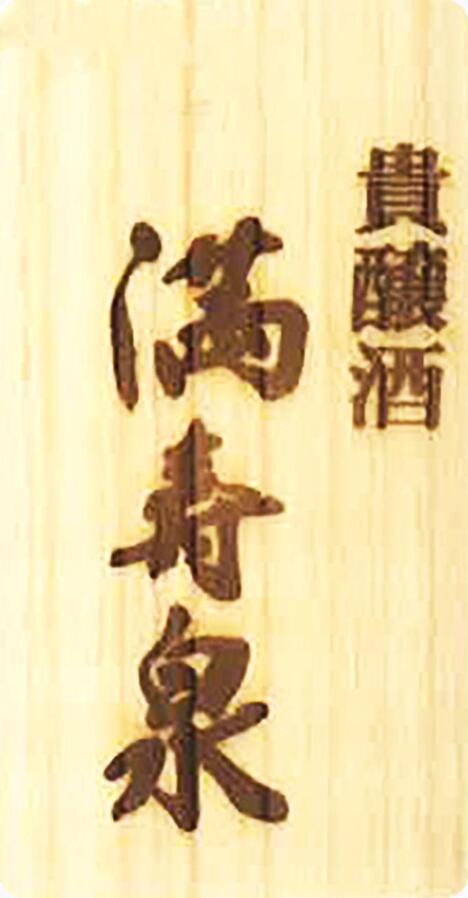 貴醸酒
満寿泉